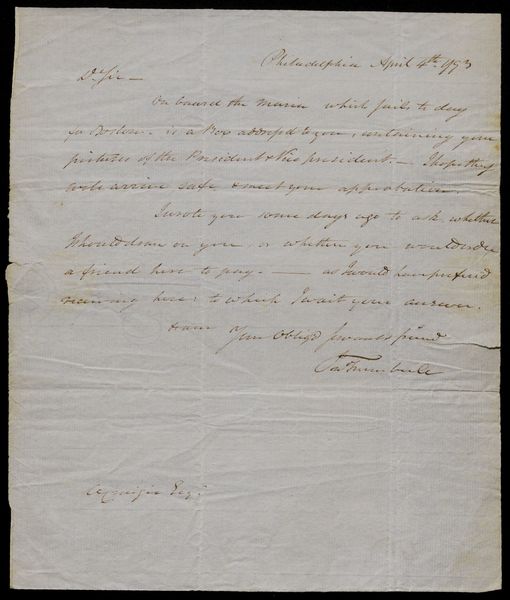 Philadelphia April 4th. 1793
Dr Sir —
On board the Maria which sails to day
for Boston. is a Box address'd to you, containing your
pictures of the President & Vice president. — I hope they
will arrive safe & meet your approbation.
I wrote you some days ago to ask whether
I should draw on you, or whether you would order
a friend here to pay. — as I would have prefer'd
receiving here: to which I wait your answer.
I am Your Oblig'd Servant & friend
Jno Trumbull
Esqr.